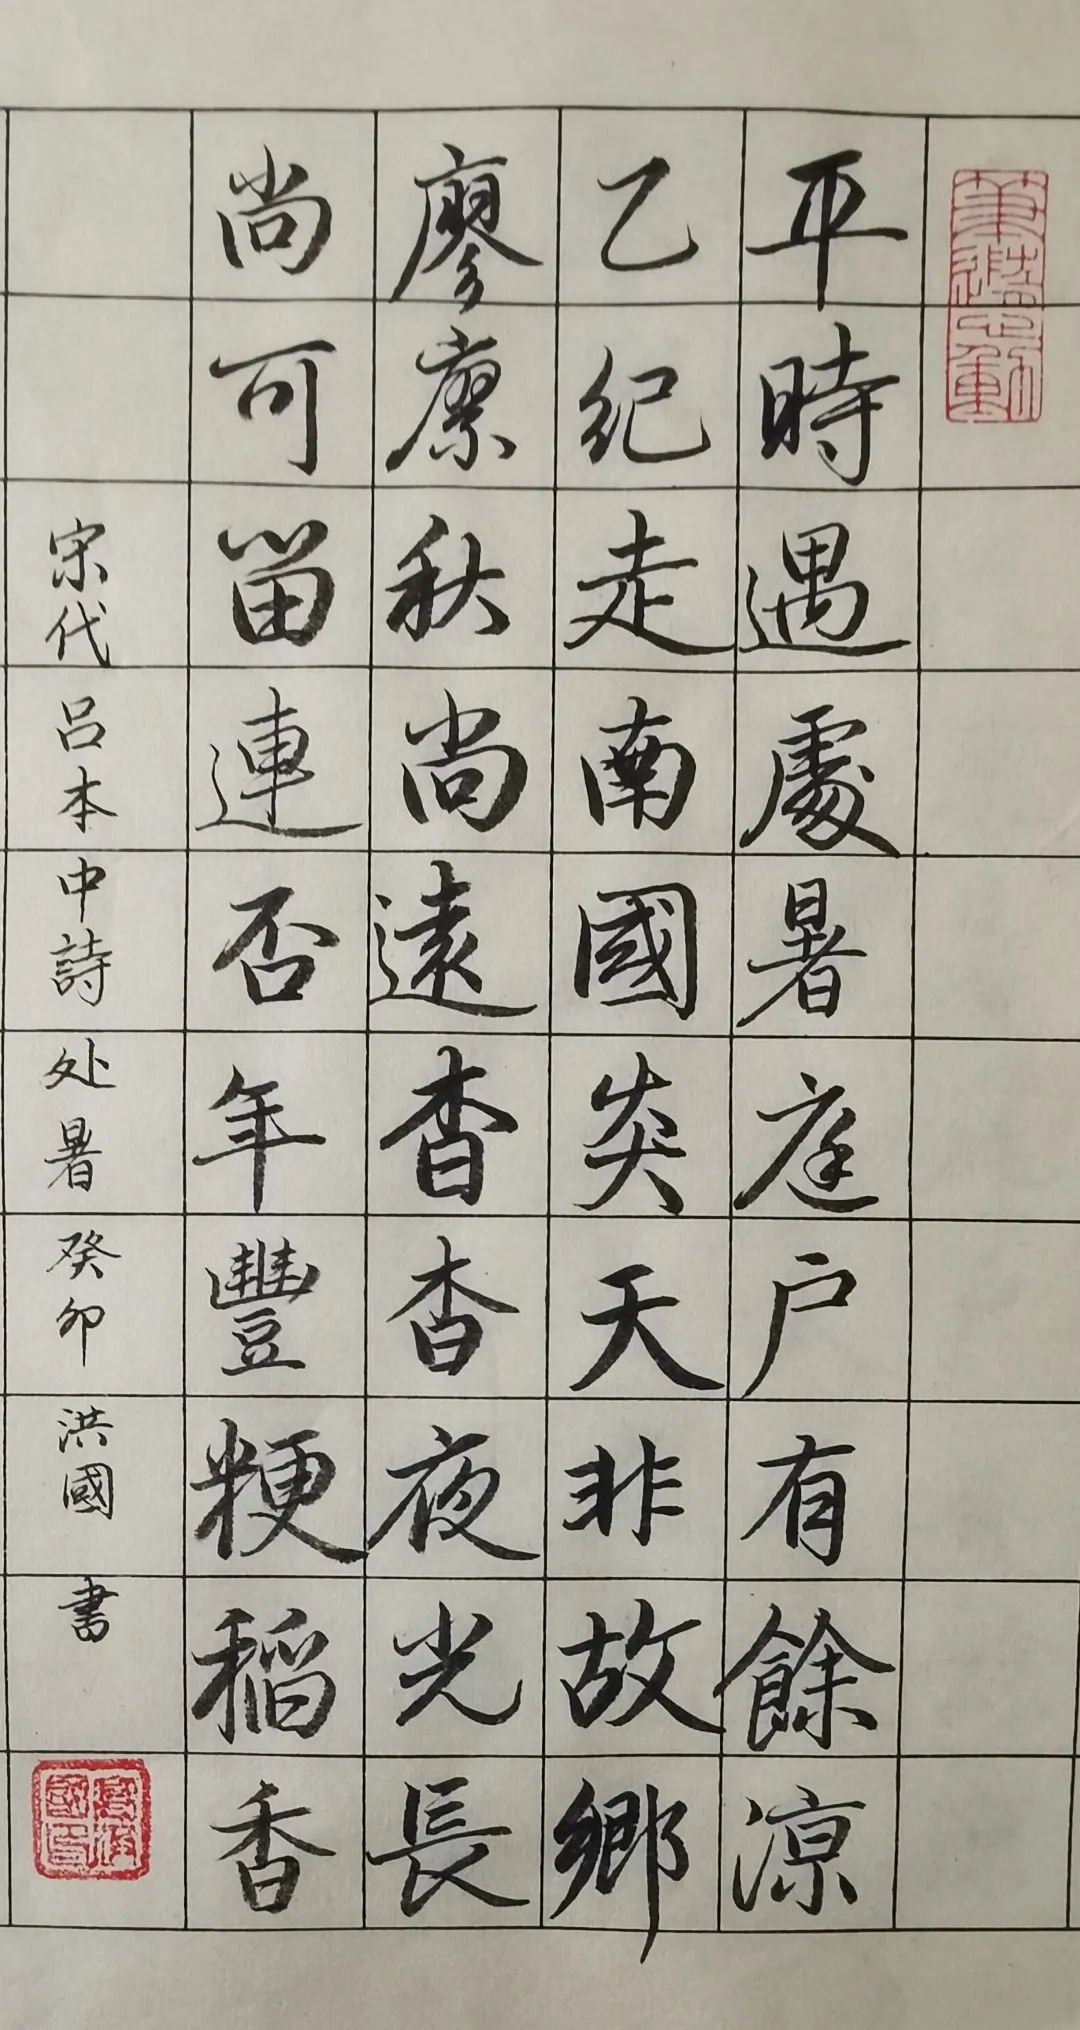 平時遇處暑庭户有餘涼
乙紀走南國炎天非故鄉
廖廖秋尚遠杳杳夜光長
尚可留連否年豐粳稻香
宋代吕本中詩处暑癸卯洪國書